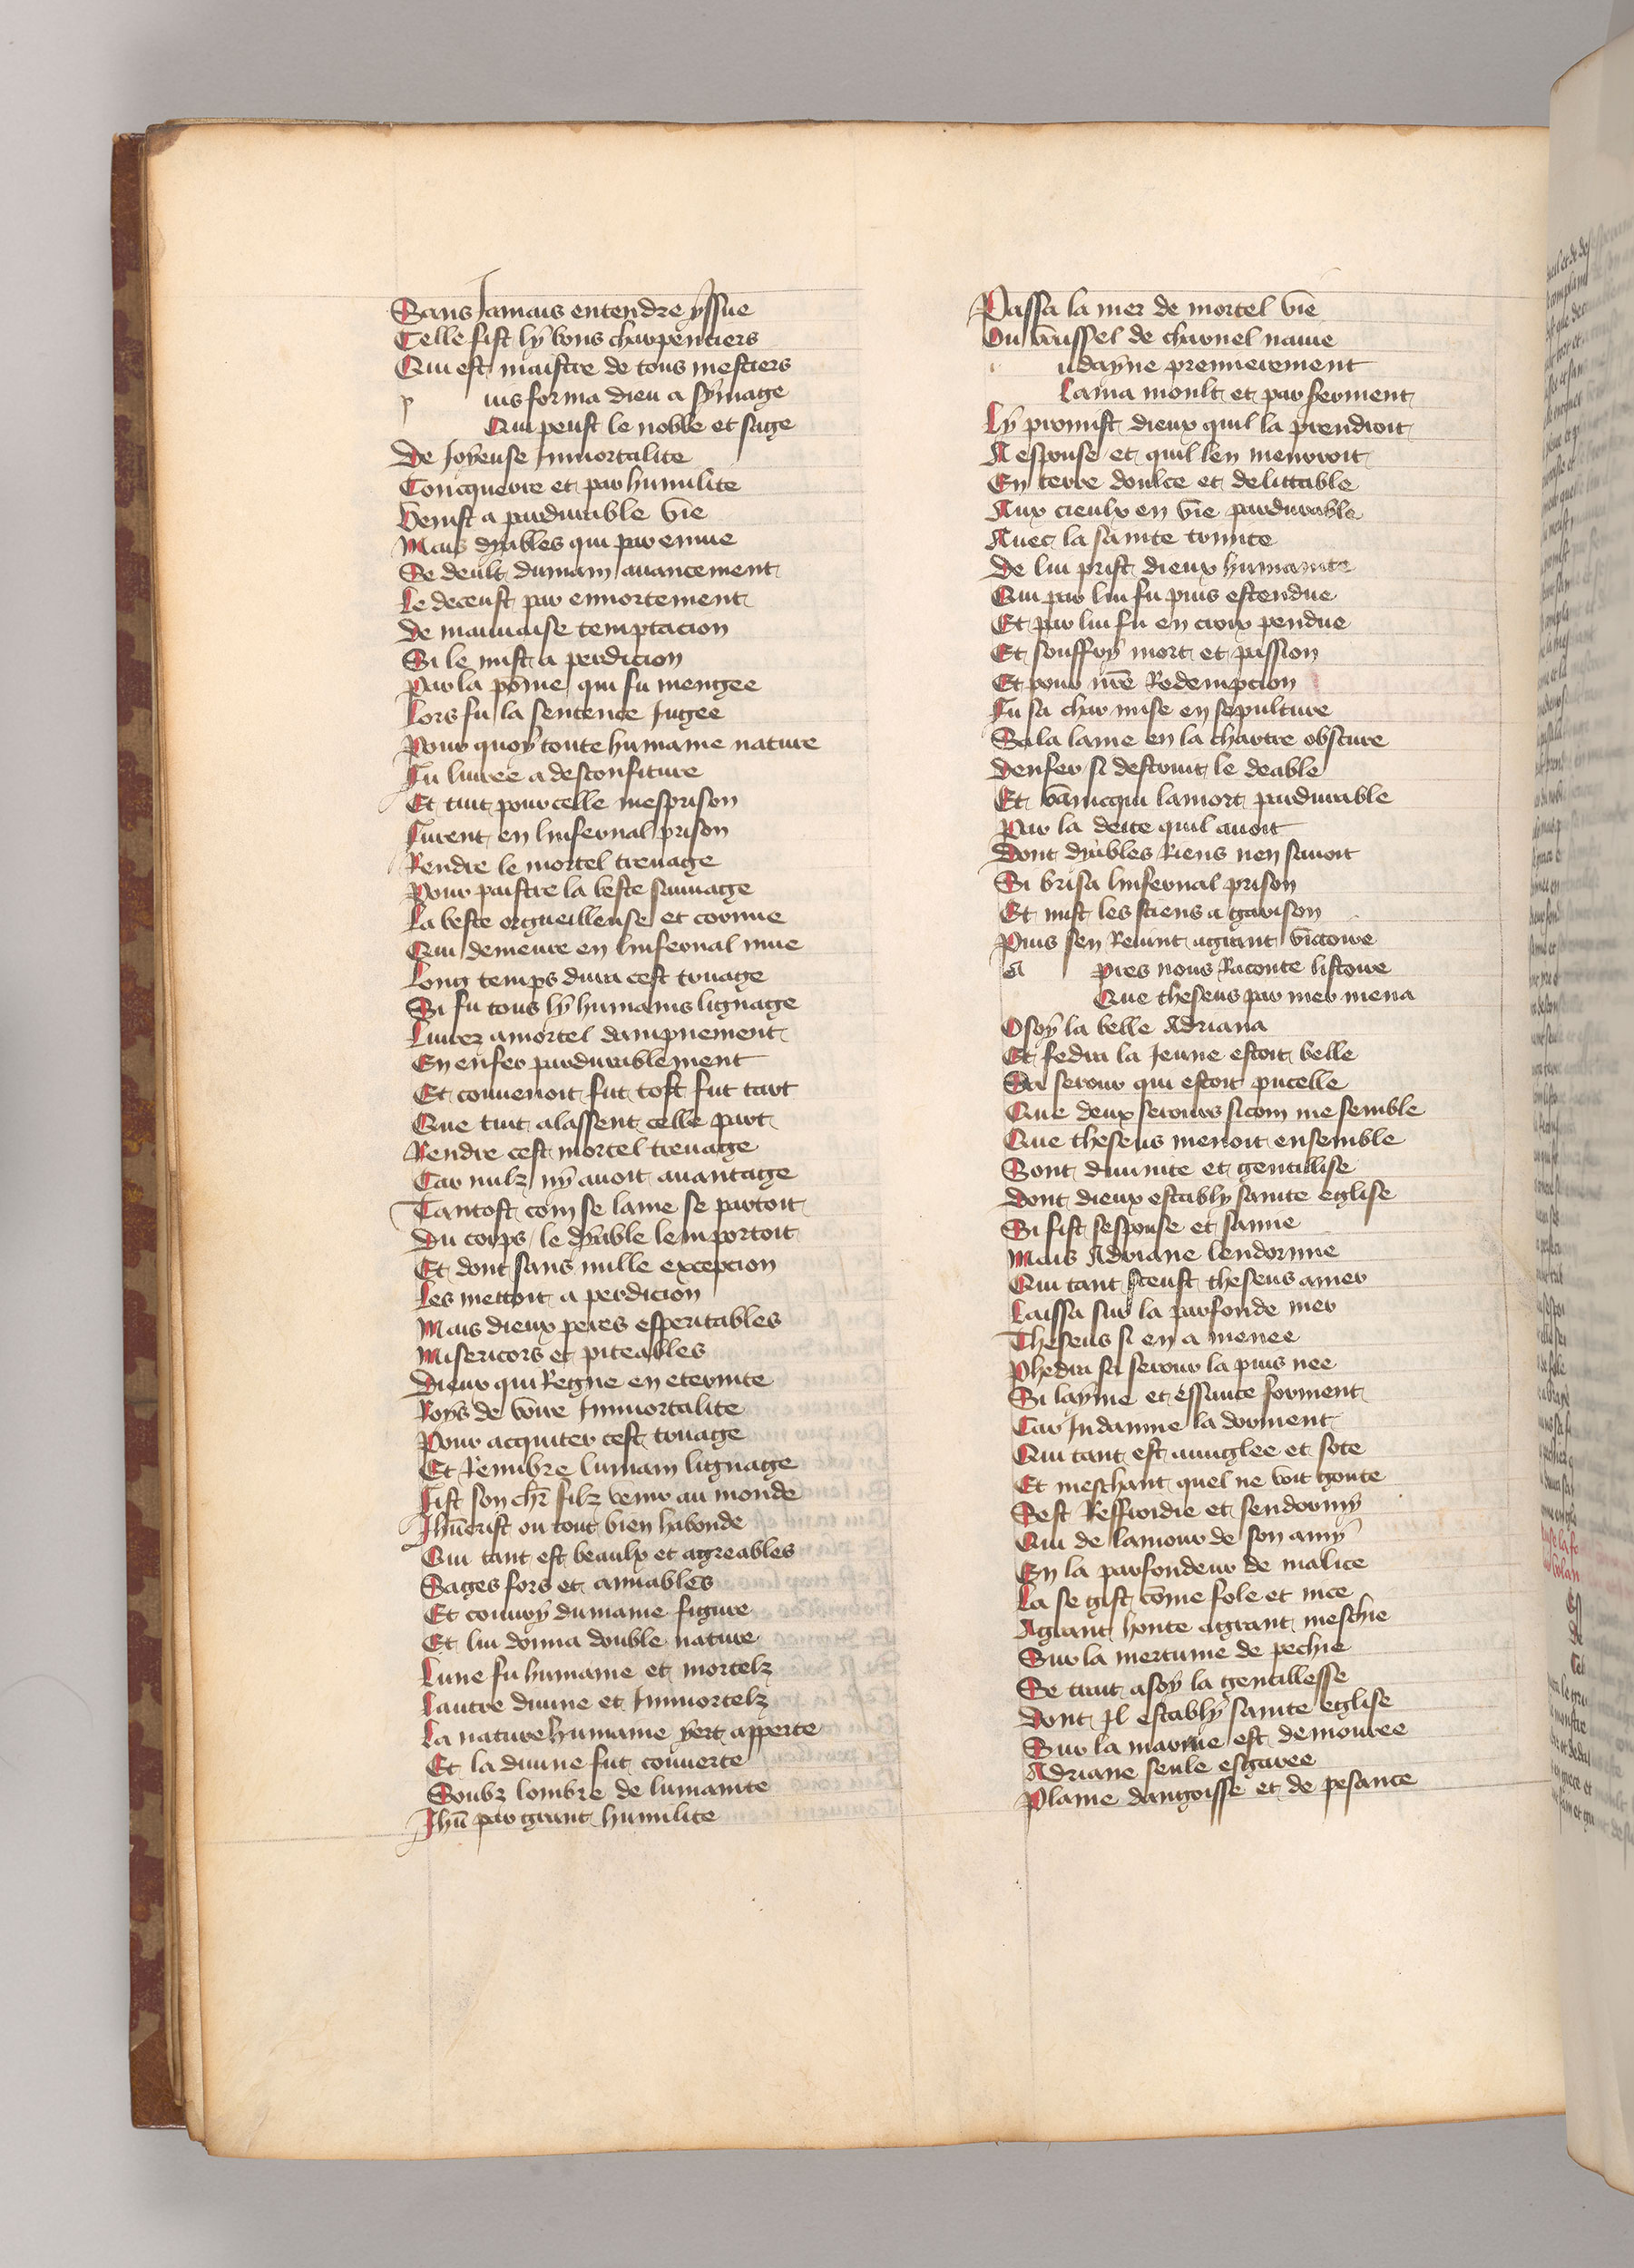 Sans Jamais entendre yssue
Telle fist ly bons charpentiers
Qui est maistre de tous mestiers
p uis forma dieu a symage
Qui peust le noble et sage
De Joyeuse Jmmortalite
Concquerre et par humilite
Venist a pardurable vie
Mais dyables qui par enuie
Se deult dumain auancement
Le deceust par ennortement
De mauuaise temptacion
Si le mist a perdicion
Par la pome qui fu mengee
Lors fu la sentence Jugee
Pour quoy toute humaine nature
Fu liuree a desconfiture
Et tuit pour celle mesprison
Furent en linfernal prison
Rendre le mortel treuage
Pour paistre la beste sauuage
La beste orgueilleuse et cornue
Qui demeure en linfernal mue
Long temps dura cest truage
Si fu tous ly humains lignage
Liurez a mortel dampnement
En enfer pardurablement
Et conuenoit fut tost fut tart
Que tuit alassent celle part
Rendre cest mortel treuage
Car nulz ny auoit auantage
Tantost com se lame se partoit
Du corps le dyable lemportoit
Et dont sans nulle excepcion
Les mettoit a perdicion
Mais dieux peres esperitables
Misericors et piteables
Dieux qui Regne en eternite
Roys de vraie Jmmortalite
Pour acquiter cest truage
Et Remibre lumain lignage
Fist son chr filz venir au monde
Jhucrist ou tout bien habonde
Qui tant est beaulx et agreables
Sages fors et amiables
Et couury dumaine figure
Et lui donna double nature
Lune fu humaine et mortelz
Lautre diuine et Jmmortelz
La nature humaine yert apperte
Et la diuine fut couuerte
Soubz lombre de lumanite
Jhu par grant humilite
Passa la mer de mortel vie
Ou vaissel de charnel nauie
i udayne premierement
Lama moult et par serment
Ly promist dieux quil la prendroit
A espouse et quil len menrroit
En terre doulce et delittable
Aux cieulx en vie pardurable
Auec la sainte trinite
De lui prist dieux humanite
Qui par lui fu puis estendue
Et par lui fu en croix pendue
Et souffry mort et passion
Et pour nre Redempcion
Fu sa char mise en sepulture
Sala lame en la chartre obscure
Denfer si destruit le deable
Et vainicqui lamort pardurable
Par la deite quil auoit
Dont dyables Riens nen sauoit
Si brisa linfernal prison
Et mist les siens a garison
Puis sen Reuint agrant victoire
a pres nous Raconte listoire
Que theseus par mer mena
O soy la belle Adriana
Et fedra la Jeune estoit belle
Sa serour qui estoit pucelle
Que deux serours sicom me semble
Que theseus menoit ensemble
Sont diuinite et gentillise
Dont dieux estably sainte eglise
Si fist sespouse et samie
Mais Adriane lendormie
Qui tant sceust theseus amer
Laissa sur la parfonde mer
Theseus si en a menee
Phedra sa serour la puis nee
Si layme et essauce forment
Car Judaime la dorment
Qui tant est auuglee et sote
Et meschant quel ne voit goute
Sest Reffroidie et sendormy
Qui de lamour de son amy
En la parfondeur de malice
La se gist come fole et nice
Agrant honte agrant meschie
Sur la mertume de pechie
Se truit a soy la gentillesse
Dont Jl estably sainte eglise
Sur la marine est demouree
Adriane seule esgaree
Plaine dangoisse et de pesance